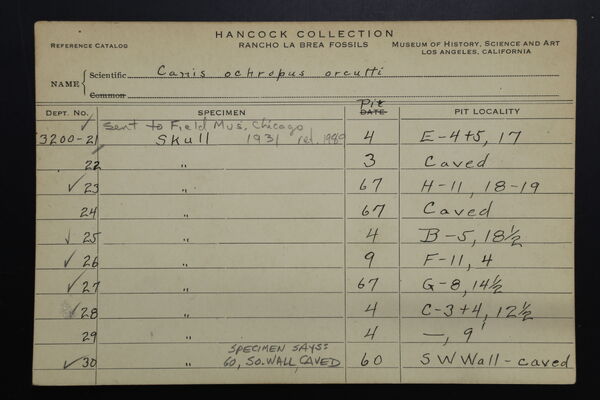 HANCOCK COLLECTION
REFERENCE CATALOG RANCHO LA BREA FOSSILS MUSEUM OF HISTORY, SCIENCE AND ART
LOS ANGELES, CALIFORNIA
NAME { Scientific Canis ochropus orcutti
Common
Pit
DEPT. NO. SPECIMEN DATE PIT LOCALITY
✓ Sent to Field Mus. Chicago
3200-21 Skull 1931 ret. 1989 4 E-4+5, 17
22 " 3 Caved
✓ 23 " 67 H-11, 18-19
24 " 67 Caved
✓ 25 " 4 B-5, 18½
✓ 26 " 9 F-11, 4
✓ 27 " 67 G-8, 14½
✓ 28 " 4 C-3+4, 12½
29 " 4 —, 9'
SPECIMEN SAYS:
✓ 30 " 60, SO. WALL, CAVED 60 SW Wall - caved